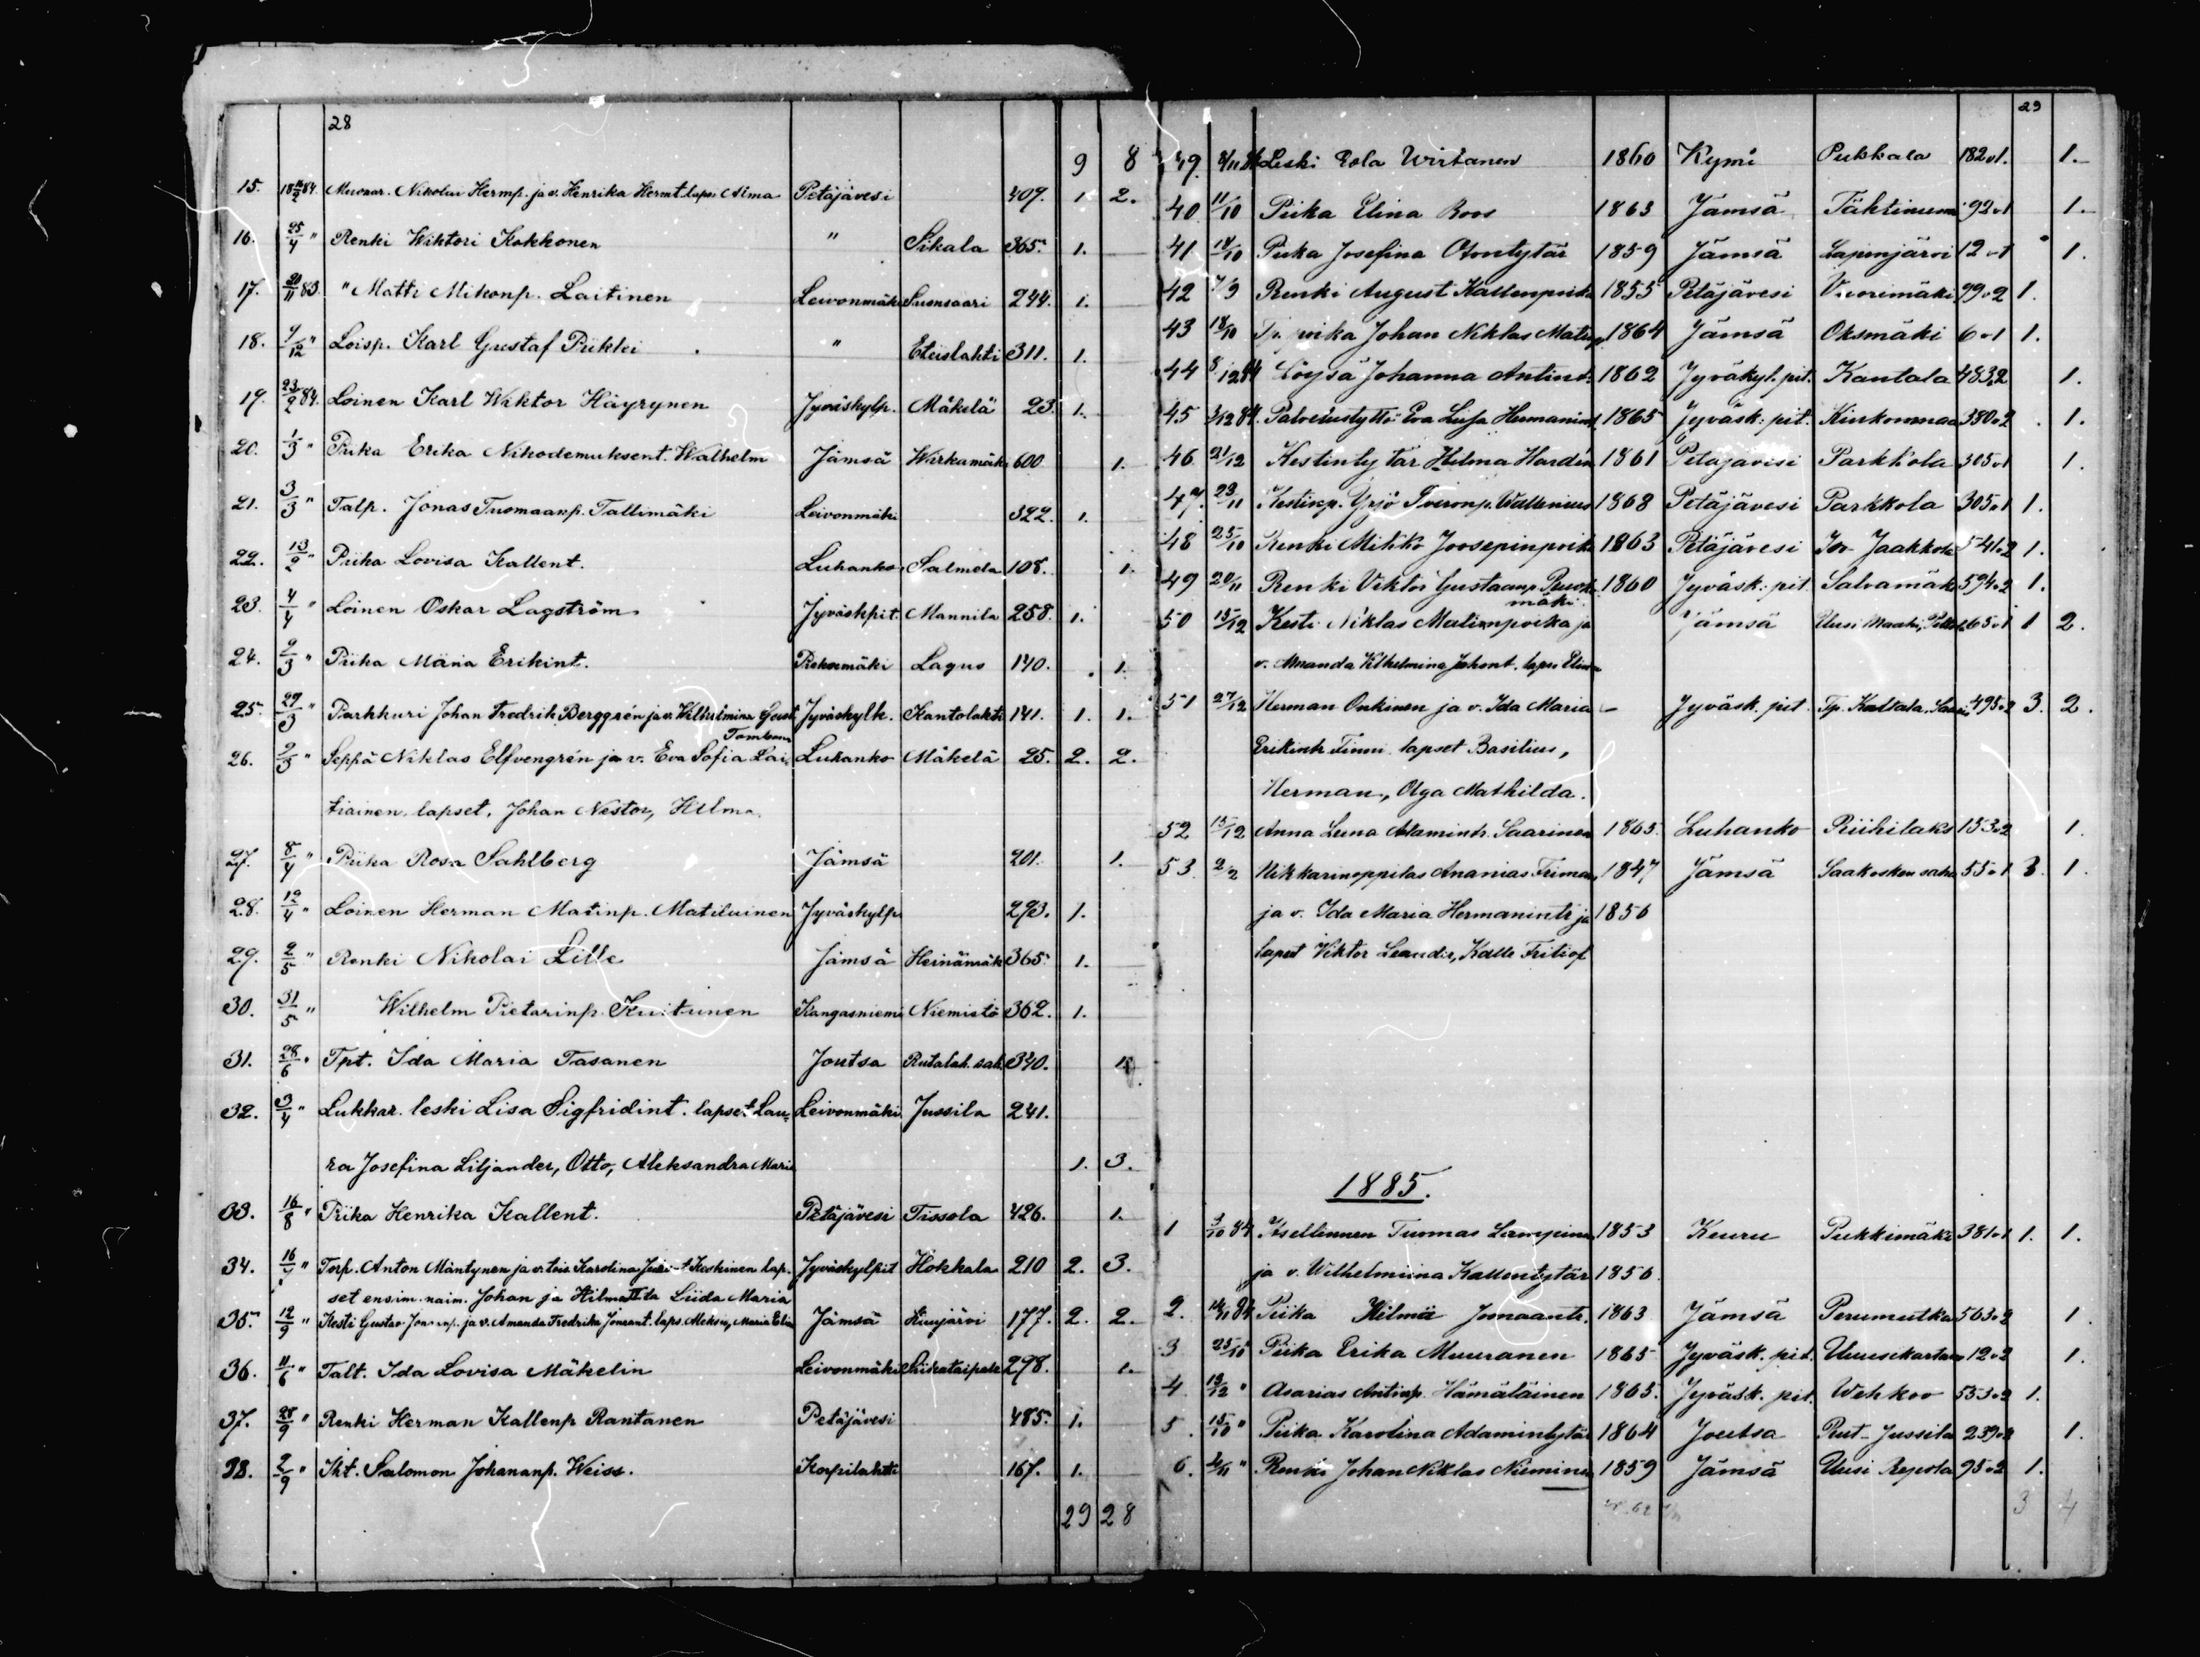 28
9 8
15. 18 11/2 84. Muonar. Nikolai Hermp. ja v. Henrika Hermt. lapsi Alma Petäjävesi 409. 1 2.
16. 25/4 " Renki Wiktori Kokkonen " Sikala 365. 1.
17. 20/11 83. " Matti Mikonp. Laitinen Leivonmäki Suonsaari 244. 1.
18. 7/12 " Loisp. Karl Gustaf Piikki " Eteislahti 311. 1.
19. 23/2 84. Loinen Karl Wiktor Häyrynen Jyväskylp. Mäkelä 23. 1.
20. 1/3 " Piika Erika Nikodemuksent. Walhelm Jämsä Wirkamäki 600 1.
21. 3/3 " Talp. Jonas Tuomaanp. Tallimäki Leivonmäki 322. 1.
22. 13/2 " Piika Lovisa Kallent. Luhanko Salmela 108. 1.
23. 4/4 " Loinen Oskar Lagström Jyväskpit. Mannila 258. 1.
24. 2/3 " Piika Maria Erikint. Pieksemäki Lagus 140. 1.
25. 29/3 " Parkkuri Johan Fredrik Berggrén ja v. Wilhelmina Gust. Jyväskylk. Kantolahti 141. 1. 1.
26. 2/3 " Seppä Niklas Elfvengrén ja v. Eva Sofia Lai- Luhanko Mäkelä 25. 2. 2.
tiainen, lapset, Johan Nestor, Hilma.
27. 8/4 " Piika Rosa Sahlberg Jämsä 201. 1.
28. 12/4 " Loinen Herman Matinp. Matiluinen Jyväskylp. 293. 1.
29. 2/5 " Renki Nikolai Lille Jämsä Heinämäki 365. 1.
30. 31/5 " Wilhelm Pietarinp. Kuitunen Kangasniemi Niemistö 362. 1.
31. 28/6 " Tpt. Ida Maria Tasanen Joutsa Rutalah. sah. 340. 1.
32. 3/4 " Lukkar. leski Lisa Sigfridint. lapset Lau- Leivonmäki Jussila 241.
ra Josefina Liljander, Otto, Aleksandra Maria 1. 3.
33. 16/8 " Piika Henrika Kallent. Petäjävesi Tissola 426. 1.
34. 16/ " Torp. Anton Mäntynen ja v. Karolina Keskinen lap- Jyväskylpit Hokkala 210 2. 3.
set ensim. naim. Johan ja Hilma II:ta Liida Maria
35. 12/9 " Kesti Gustav ja v. Amanda Fredrika laps. Aleksi, Maria Elin Jämsä Kuujärvi 177. 2. 2.
36. 11/6 " Talt. Ida Lovisa Mäkelin Leivonmäki Siikataipale 298. 1.
37. 28/9 " Renki Herman Kallenp. Rantanen Petäjävesi 485. 1.
38. 2/9 " Iht. Salomon Johananp. Weiss. Korpilahti 167. 1.
29 28
29
49. Leski Eola Wirtanen 1860 Kymi Pukkala 182 v 1. 1.
40 11/10 Piika Elina Roos 1863 Jämsä Tähtiniemi 92 v 1 1.
41 18/10 Piika Josefina Otontytär 1859 Jämsä Lapinjärvi 12 v 1 1.
42 7/9 Renki August Kallenpoika 1855 Petäjävesi Vuorimäki 99 v 2 1.
43 18/10 Tp. poika Johan Niklas Matinp. 1864 Jämsä Oksmäki 6 v 1 1.
44 8/12 84 Löysä Johanna Antint. 1862 Jyväkyl. pit. Kantala 483. 2 1.
45 3/12 84. Palvelustyttö Eva Liisa Hermanint. 1865 Jyväsk. pit. Kirkonmaa 380 v 2 1.
46 21/12 Kestintytär Hilma Hardén 1861 Petäjävesi Parkkola 305 v 1 1.
47. 23/11 Kestinp. Yrjö Iivaronp. Wallenius 1868 Petäjävesi Parkkola 305 v 1 1.
48 25/10 Renki Mikko Joosepinpoika 1863 Petäjävesi Iso Jaakkola 541 v 2 1.
49 20/11 Renki Viktor Gustaanp. Ruok- 1860 Jyväsk. pit. Salvamäki 594 v 2 1.
mäki
50 15/12 Kesti Niklas Matinpoika ja Jämsä Uusi 1 2.
v. Amanda Vilhelmina Johant. lapsi Elina
51 27/12 Herman Onkinen ja v. Ida Maria – Jyväsk. pit. Tp. Kaltala 495 v 2 3. 2.
Erikintr. Finni lapset Basilius,
Herman, Olga Mathilda.
52 15/12 Anna Leena Adamintr. Saarinen 1863. Luhanko Riihilaks 153 v 2 1.
53 2/2 Nikkarinoppilas Ananias Friman 1847 Jämsä Saakosken saha 55 v 1 3. 1.
ja v. Ida Maria Hermanintr. ja 1856
lapset Viktor Leander, Kalle Fritiof
1885.
1 3/10 84 Itsellinnen Tuomas Lampinen 1853 Keuru Pukkimäki 381 v 1 1. 1.
ja v. Wilhelmiina Kallentytär 1856.
2. Piika Hilma Joonaantr. 1863 Jämsä Perumutka 563 v 2 1
3 25/10 Piika Erika Muuranen 1865 Jyväsk. pit. Uuusikartano 12 v 2 1.
4. 12/12 " Asarias Antinp. Hämäläinen 1863. Jyväsk. pit. Wehkoo 553 v 2 1.
5. 15/10 " Piika Karolina Adamintytär 1864 Joutsa Rut-Jussila 239 v 2 1.
6. 2/11 " Renki Johan Niklas Nieminen 1859 Jämsä Uusi Repola 95 v 2 1.
3 4